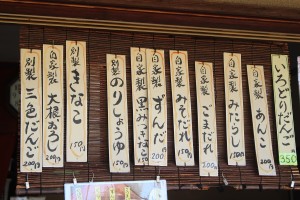 いろどりだんご
350
自家製 あんこ 150円
自家製 みたらし 150円
自家製 ごまだれ 200円
自家製 みそだれ 150円
自家製 ずんだ 200円
自家製 黒みつきなこ 150円
別製 のりしょうゆ 150円
別製 きなこ 150円
自家製 大根おろし 200円
別製 三色だんご 200円